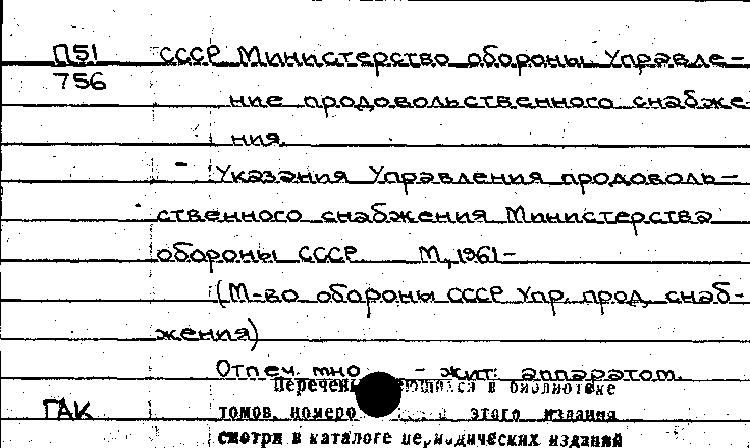 П51 СССР Министерство обороны. Управле-
756
ние продовольственного снабже
ния.
Указания Управления продоволь-
ственного снабжения Министерства
обороны СССР. М., 1961-
(М-во обороны СССР. Упр. прод. снаб-
жения)
Отпеч. мно - жит. аппаратом.
в библиотеке
ГАК томов, номеро этого издания
смотри в каталоге периодических изданий